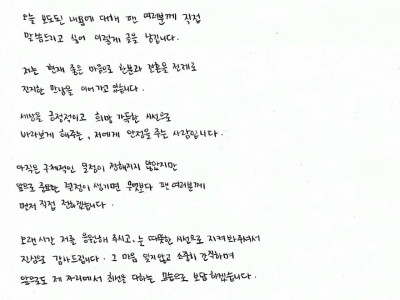 오늘 보도된 내용에 대해 팬 여러분께 직접
말씀드리고 싶어 이렇게 글을 남깁니다.
저는 현재 좋은 마음으로 한분과 결혼을 전제로
진지한 만남을 이어가고 있습니다.
세상을 긍정적이고 희망 가득한 시선으로
바라보게 해주는, 저에게 안정을 주는 사람입니다.
아직은 구체적인 일정이 정해지지 않았지만
앞으로 중요한 결정이 생기면 무엇보다 팬 여러분께
먼저 직접 전하겠습니다.
오랜시간 저를 응원해 주시고, 늘 따뜻한 시선으로 지켜봐주셔서
진심으로 감사드립니다. 그 마음 잊지않고 소중히 간직하며
앞으로도 제 자리에서 최선을 다하는 모습으로 보답하겠습니다.